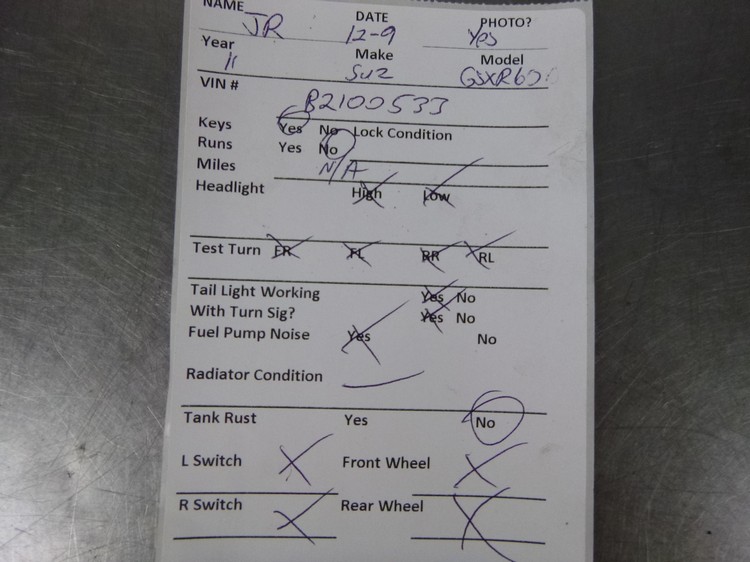 NAME JR DATE 12-9 PHOTO? Yes
Year 11 Make Suz Model GSXR600
VIN # B2100533
Keys Yes No Lock Condition
Runs Yes No
Miles N/A
Headlight High Low
Test Turn FR FL RR RL
Tail Light Working Yes No
With Turn Sig? Yes No
Fuel Pump Noise Yes No
Radiator Condition
Tank Rust Yes No
L Switch X Front Wheel X
R Switch X Rear Wheel X